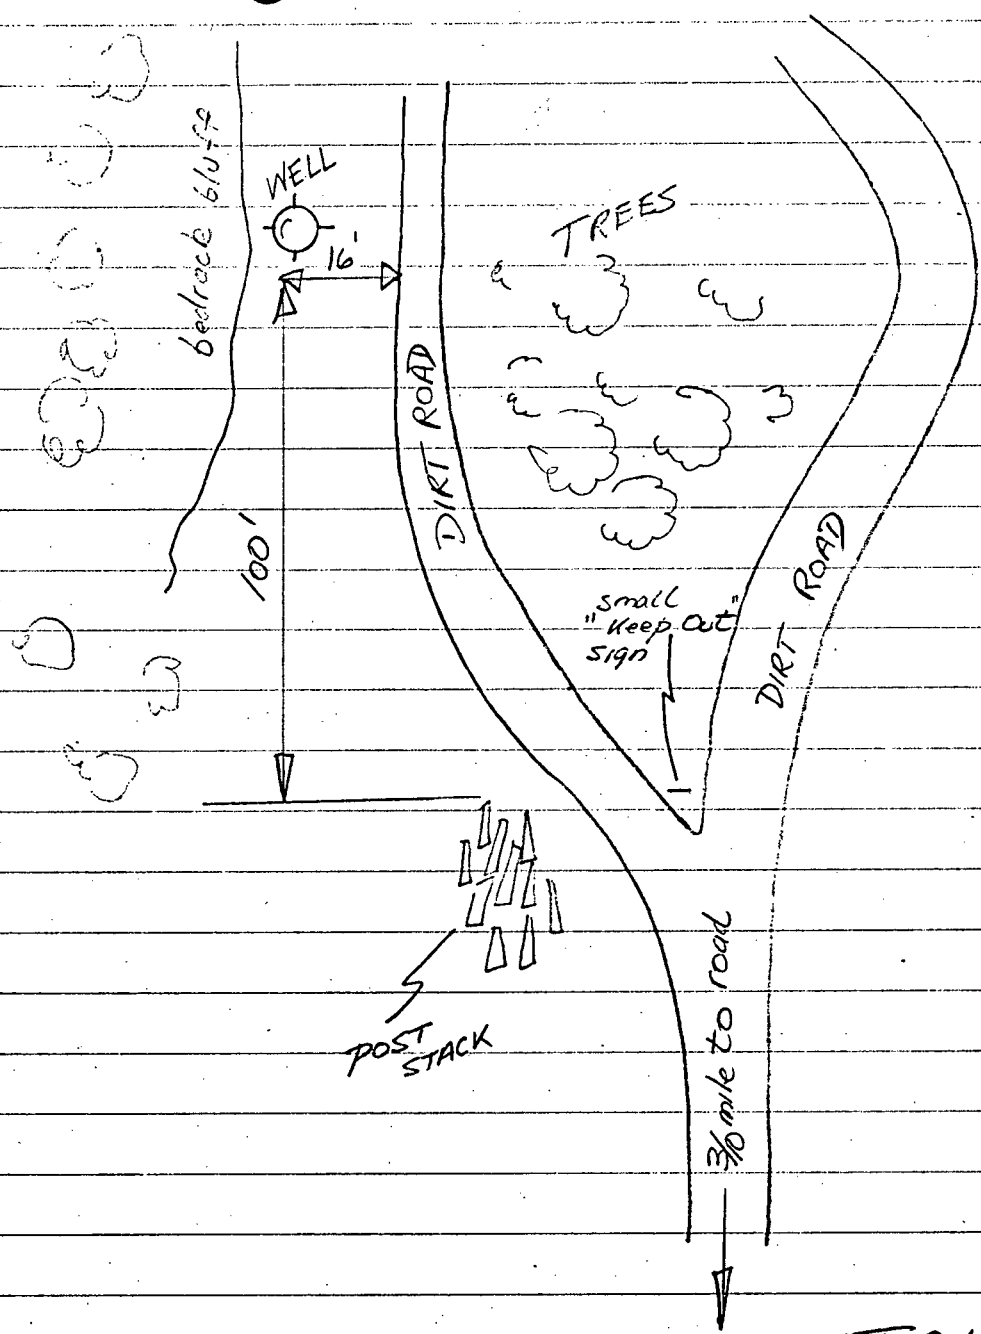 WELL
bedrock bluff
16'
TREES
DIRT ROAD
100'
small
"Keep Out"
sign
DIRT ROAD
POST
STACK
3/10 mile to road